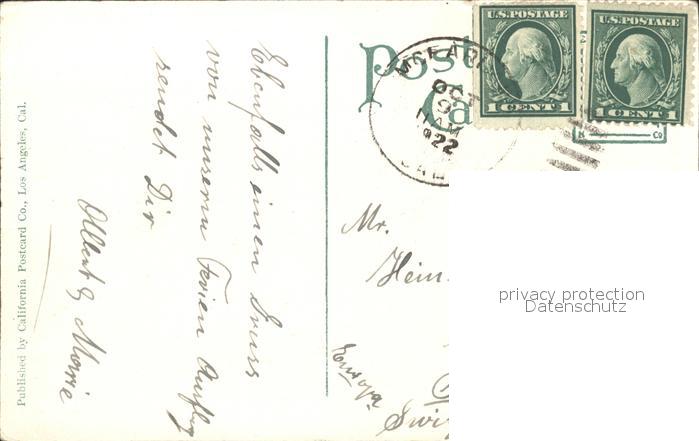 Post
Ca
U.S. POSTAGE
1 CENT 1
U.S. POSTAGE
1 CENT 1
OCT
9
11 AM
1922
CAL
Co
Ebenfalls einen Gruss
von unserm Ferien Ausflug
sendet Dir
Albert & Marie
Published by California Postcard Co., Los Angeles, Cal.
Mr.
Hein
Europa
Swi
privacy protection
Datenschutz